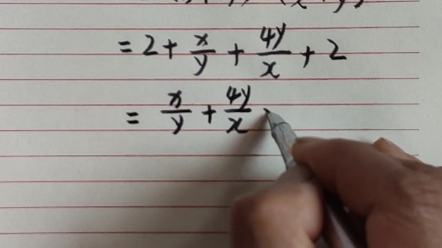 = 2 + x/y + 4y/x + 2
= x/y + 4y/x